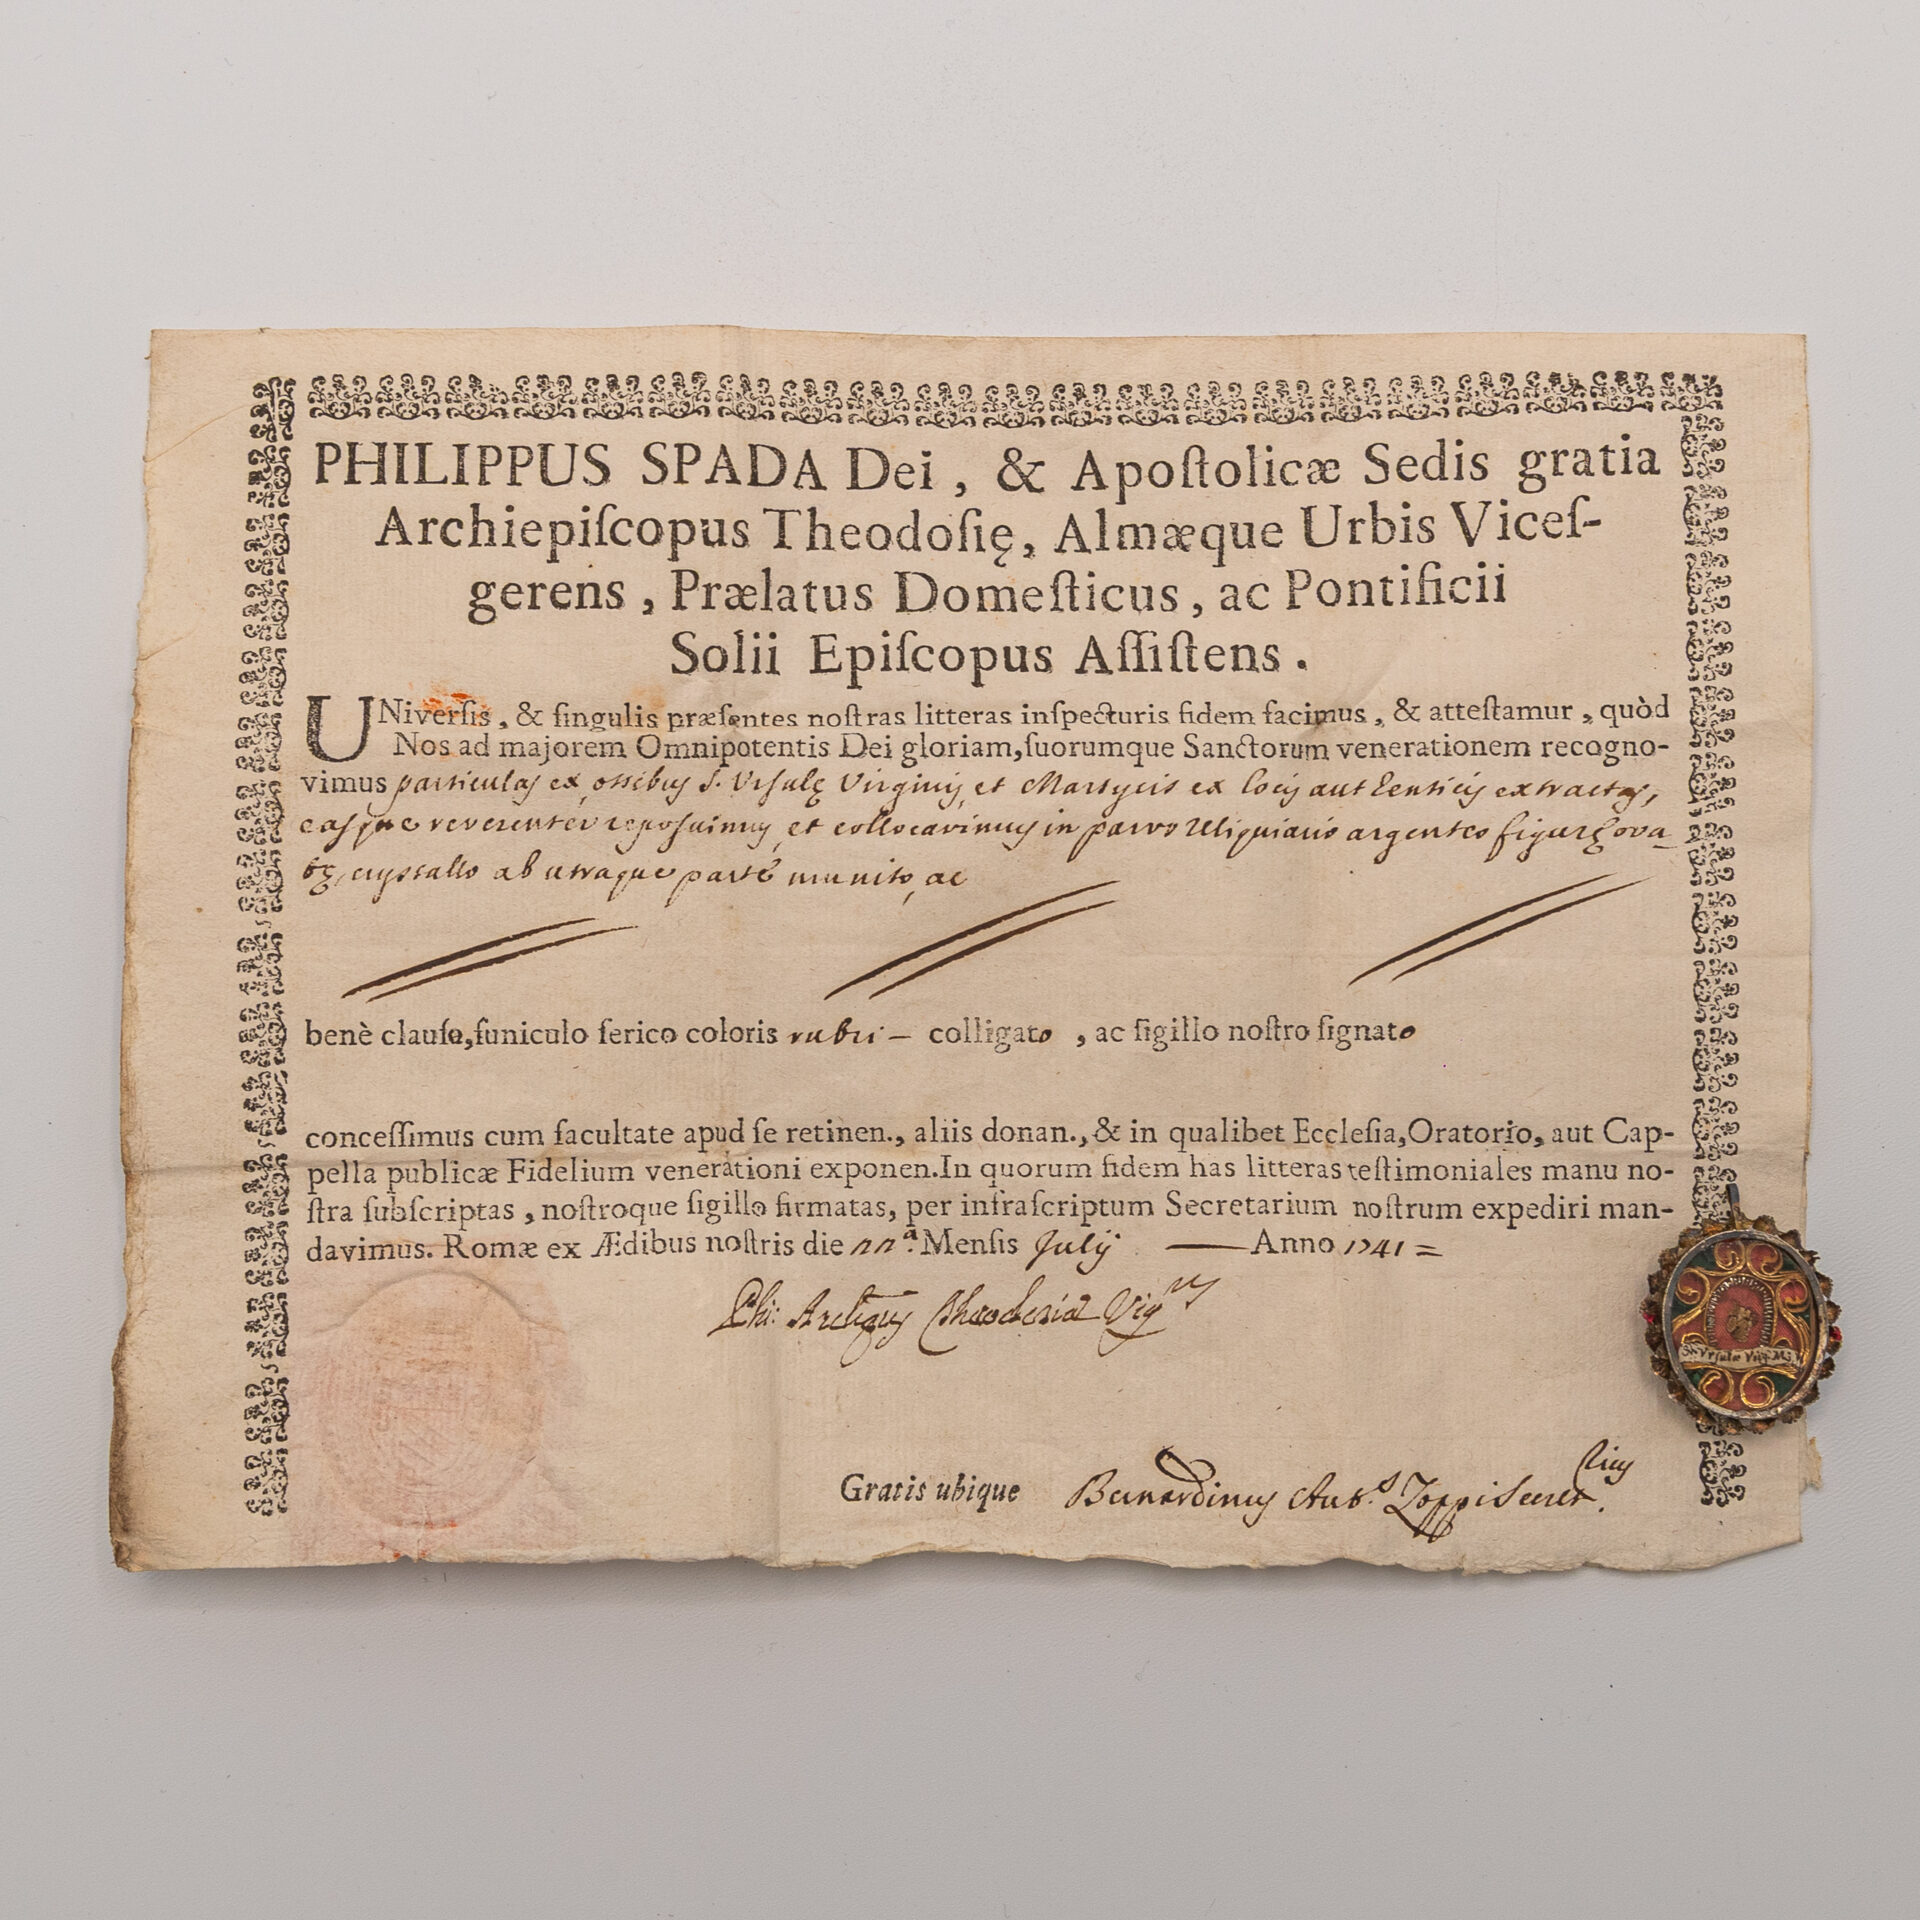 PHILIPPUS SPADA Dei, & Apoſtolicæ Sedis gratia
Archiepiſcopus Theodoſię, Almæque Urbis Viceſ-
gerens, Prælatus Domeſticus, ac Pontificii
Solii Epiſcopus Aſſiſtens.
UNiverſis, & ſingulis præſentes noſtras litteras inſpecturis fidem facimus, & atteſtamur, quòd
Nos ad majorem Omnipotentis Dei gloriam, ſuorumque Sanctorum venerationem recogno-
vimus particulas ex ossibus S. Vrſulę Virginis, et Martyris ex locis autenticis extractas,
easque reverenter reposuimus, et collocavimus in parvo reliquiario argenteo figurę ova-
tę, crystallo ab utraque parte munito, ac
benè clauſo, funiculo ſerico coloris rubri – colligato, ac ſigillo noſtro ſignato
conceſſimus cum facultate apud ſe retinen., aliis donan., & in qualibet Eccleſia, Oratorio, aut Cap-
pella publicæ Fidelium venerationi exponen. In quorum fidem has litteras teſtimoniales manu no-
ſtra ſubſcriptas, noſtroque ſigillo firmatas, per infraſcriptum Secretarium noſtrum expediri man-
davimus. Romæ ex Ædibus noſtris die 22.ª Menſis Julij — Anno 1741 =
Phi: Archiepus Theodosiæ
Gratis ubique Bernardinus Ant.s Zoppi Secret.rius
S. Vrsulæ Virg. M.